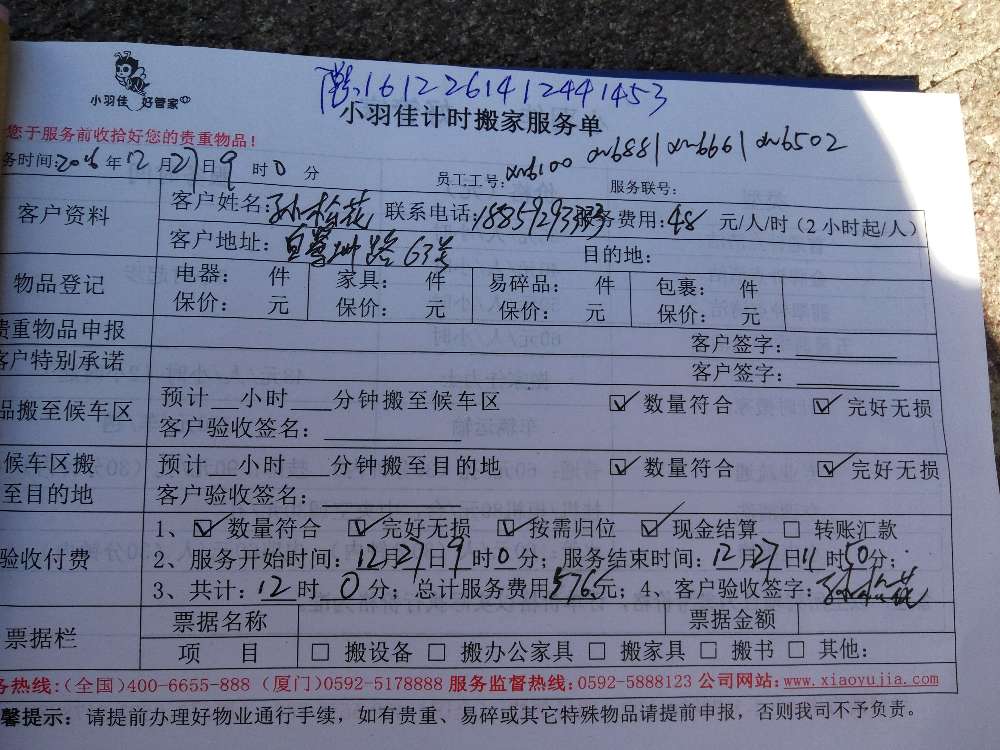 小羽佳 好管家
单号:16122614124 41453
小羽佳计时搬家服务单
您于服务前收拾好您的贵重物品!
务时间:2016年12月27日9时0分 员工工号: xm6100 xm6881 xm6661 xm6502 服务联号:
客户资料 客户姓名:孙松花 联系电话:18859293333 服务费用:48 元/人/时(2小时起/人)
客户地址: 路63号 目的地:
物品登记 电器: 件 家具: 件 易碎品: 件 包裹: 件
保价: 元 保价: 元 保价: 元 保价: 元
贵重物品申报 客户签字:
客户特别承诺 客户签字:
品搬至候车区 预计 小时 分钟搬至候车区 ☑ 数量符合 ☑ 完好无损
客户验收签名:
候车区搬 预计 小时 分钟搬至目的地 ☑ 数量符合 ☑ 完好无损
至目的地 客户验收签名:
1、☑ 数量符合 ☑ 完好无损 ☑ 按需归位 ☑ 现金结算 □ 转账汇款
验收付费 2、服务开始时间:12月27日9时0分;服务结束时间:12月27日11时50分;
3、共计:12时0分;总计服务费用576元;4、客户验收签字:孙松花
票据栏 票据名称 票据金额
项 目 □ 搬设备 □ 搬办公家具 □ 搬家具 □ 搬书 □ 其他:
务热线:(全国)400-6655-888 (厦门)0592-5178888 服务监督热线:0592-5888123 公司网站:www.xiaoyujia.com
馨提示:请提前办理好物业通行手续,如有贵重、易碎或其它特殊物品请提前申报,否则我司不予负责。